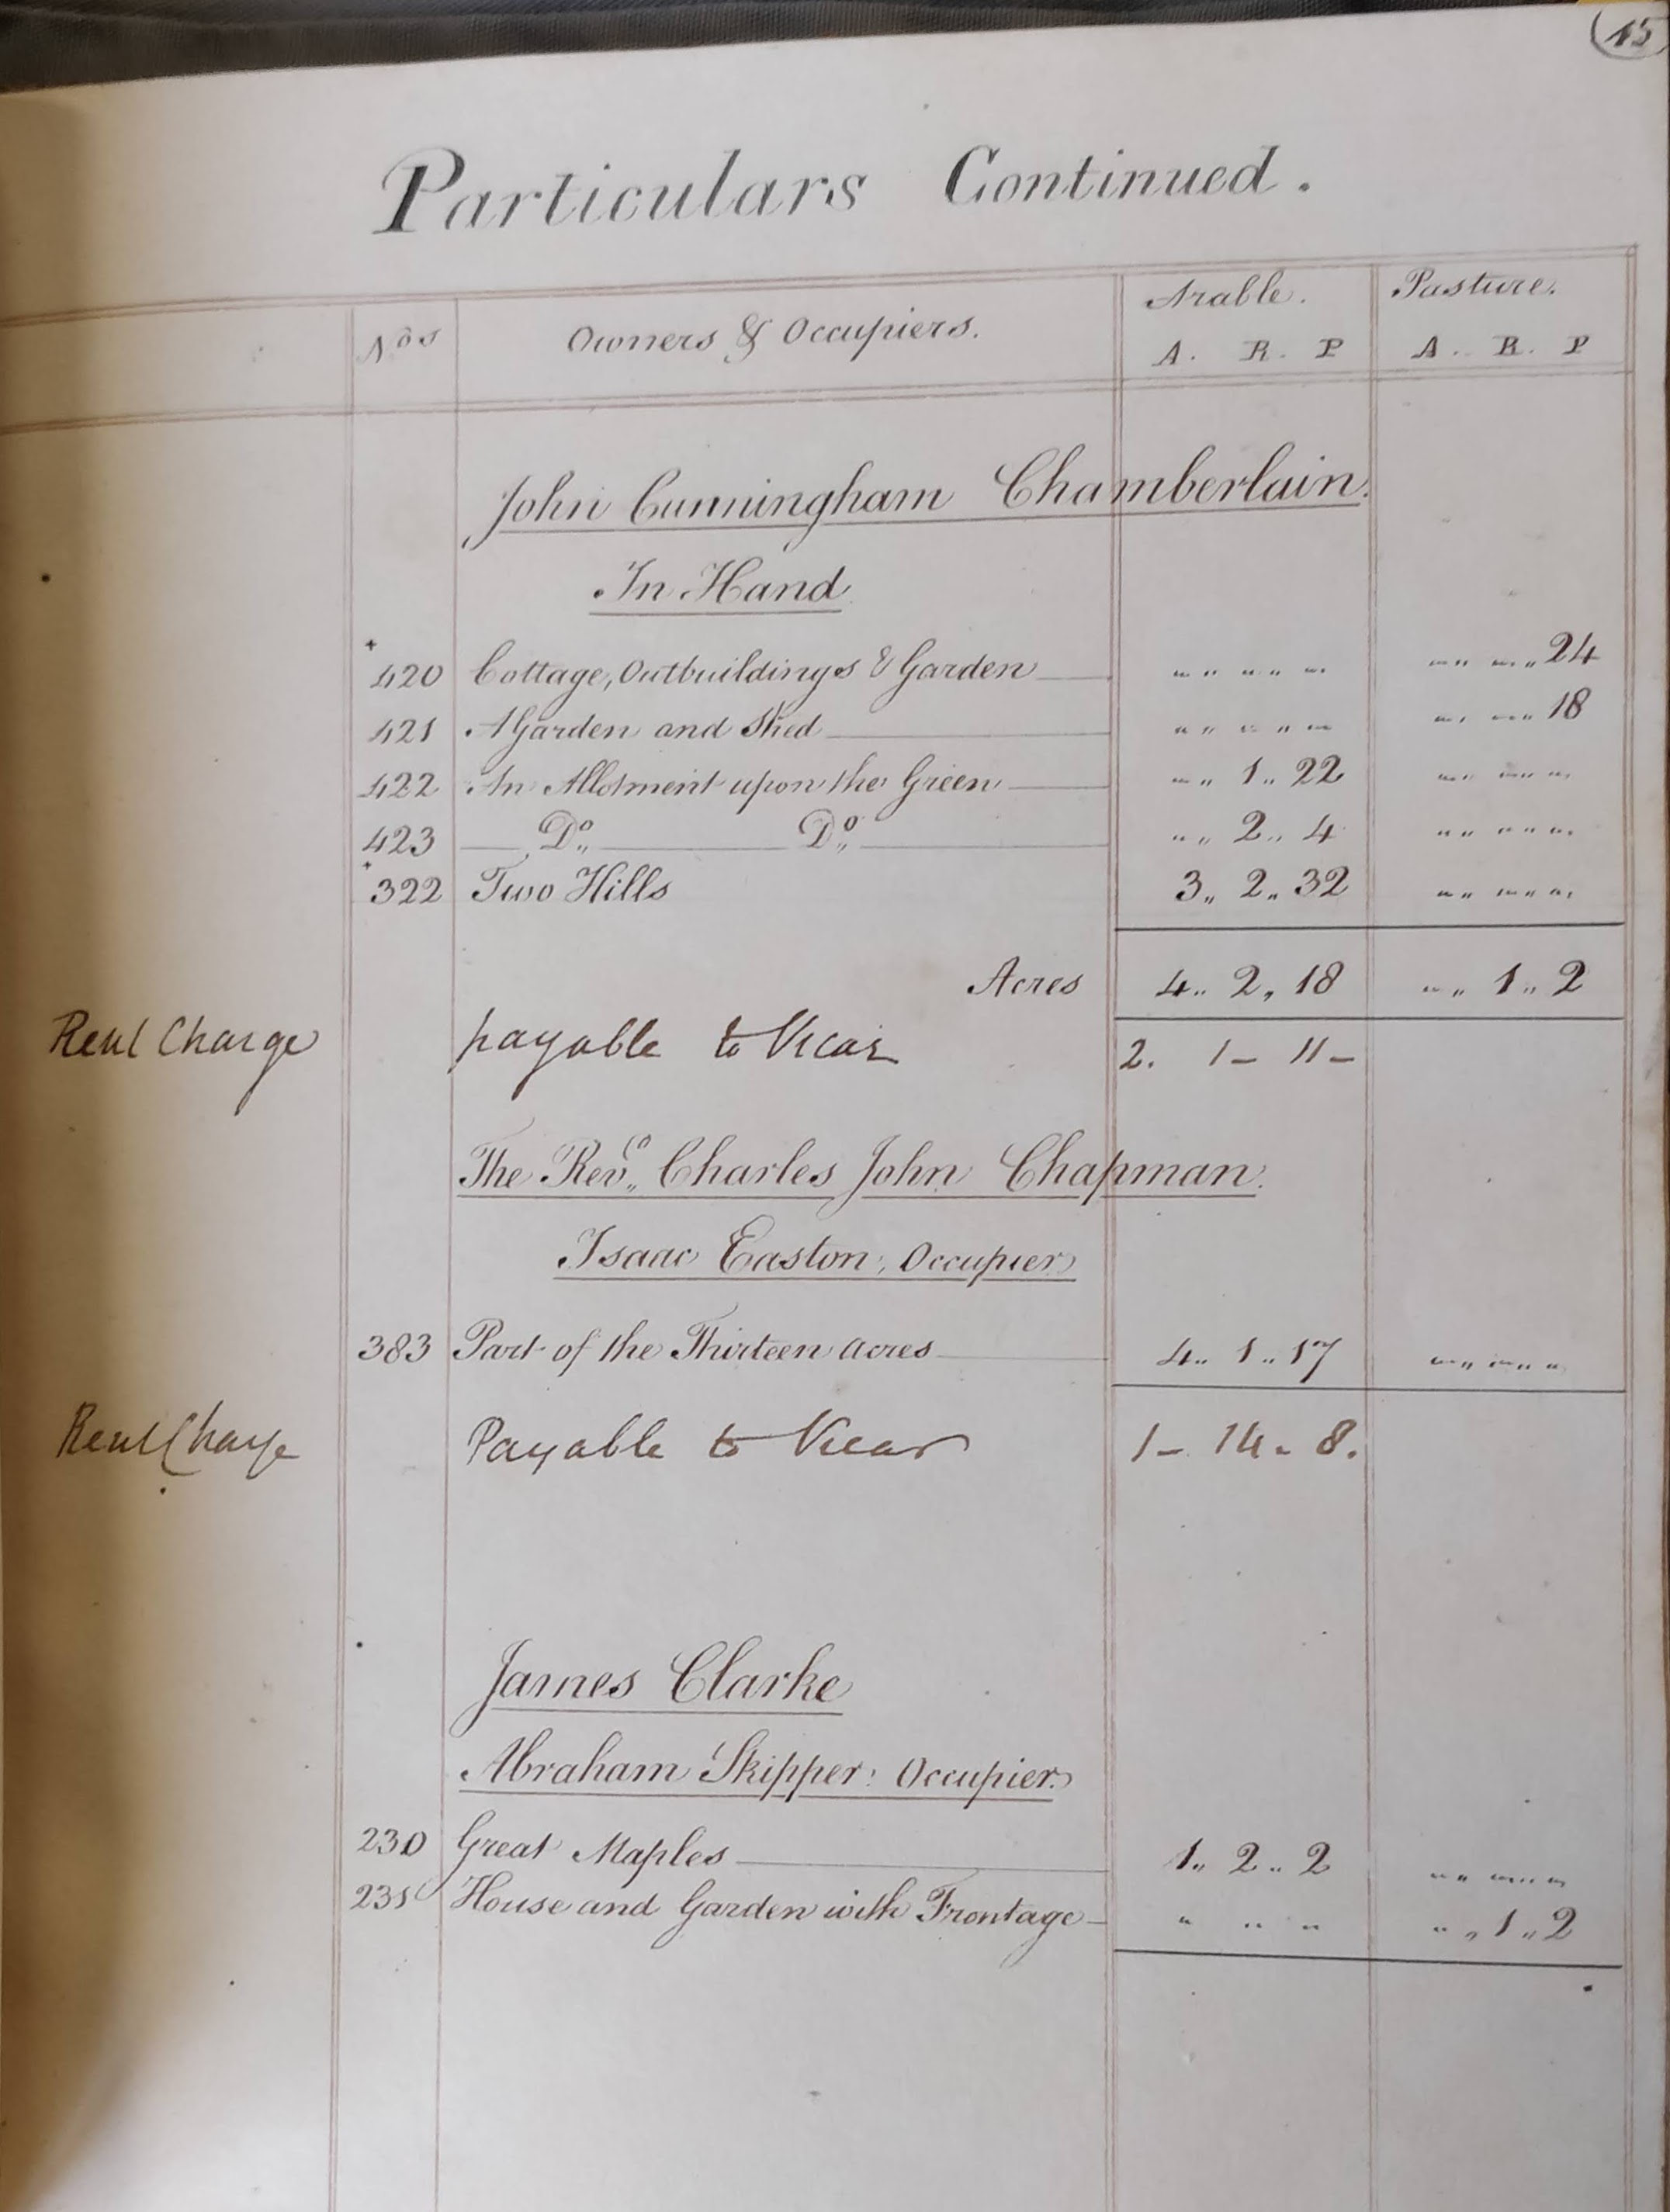 15
Particulars Continued.
Arable. Pasture.
Nos Owners & Occupiers. A. R. P A. R. P
John Cunningham Chamberlain.
In Hand
420 Cottage, Outbuildings & Garden „ „ „ „ „ 24
421 A Garden and Shed „ „ „ „ „ 18
422 An Allotment upon the Green „ „ 1 „ 22 „ „ „
423 Do „ Do „ „ „ 2 „ 4 „ „ „
322 Two Hills 3 „ 2 „ 32 „ „ „
Acres 4 „ 2 „ 18 „ „ 1 „ 2
Rent Charge payable to Vicar 2. 1 – 11 –
The Revd „ Charles John Chapman.
Isaac Easton: Occupier
383 Part of the Thirteen Acres 4 „ 1 „ 17 „ „ „
Rent Charge Payable to Vicar 1 – 14 – 8.
James Clarke
Abraham Skipper: Occupier.
230 Great Maples 1 „ 2 „ 2 „ „ „
231 House and Garden with Frontage „ „ „ „ „ 1 „ 2